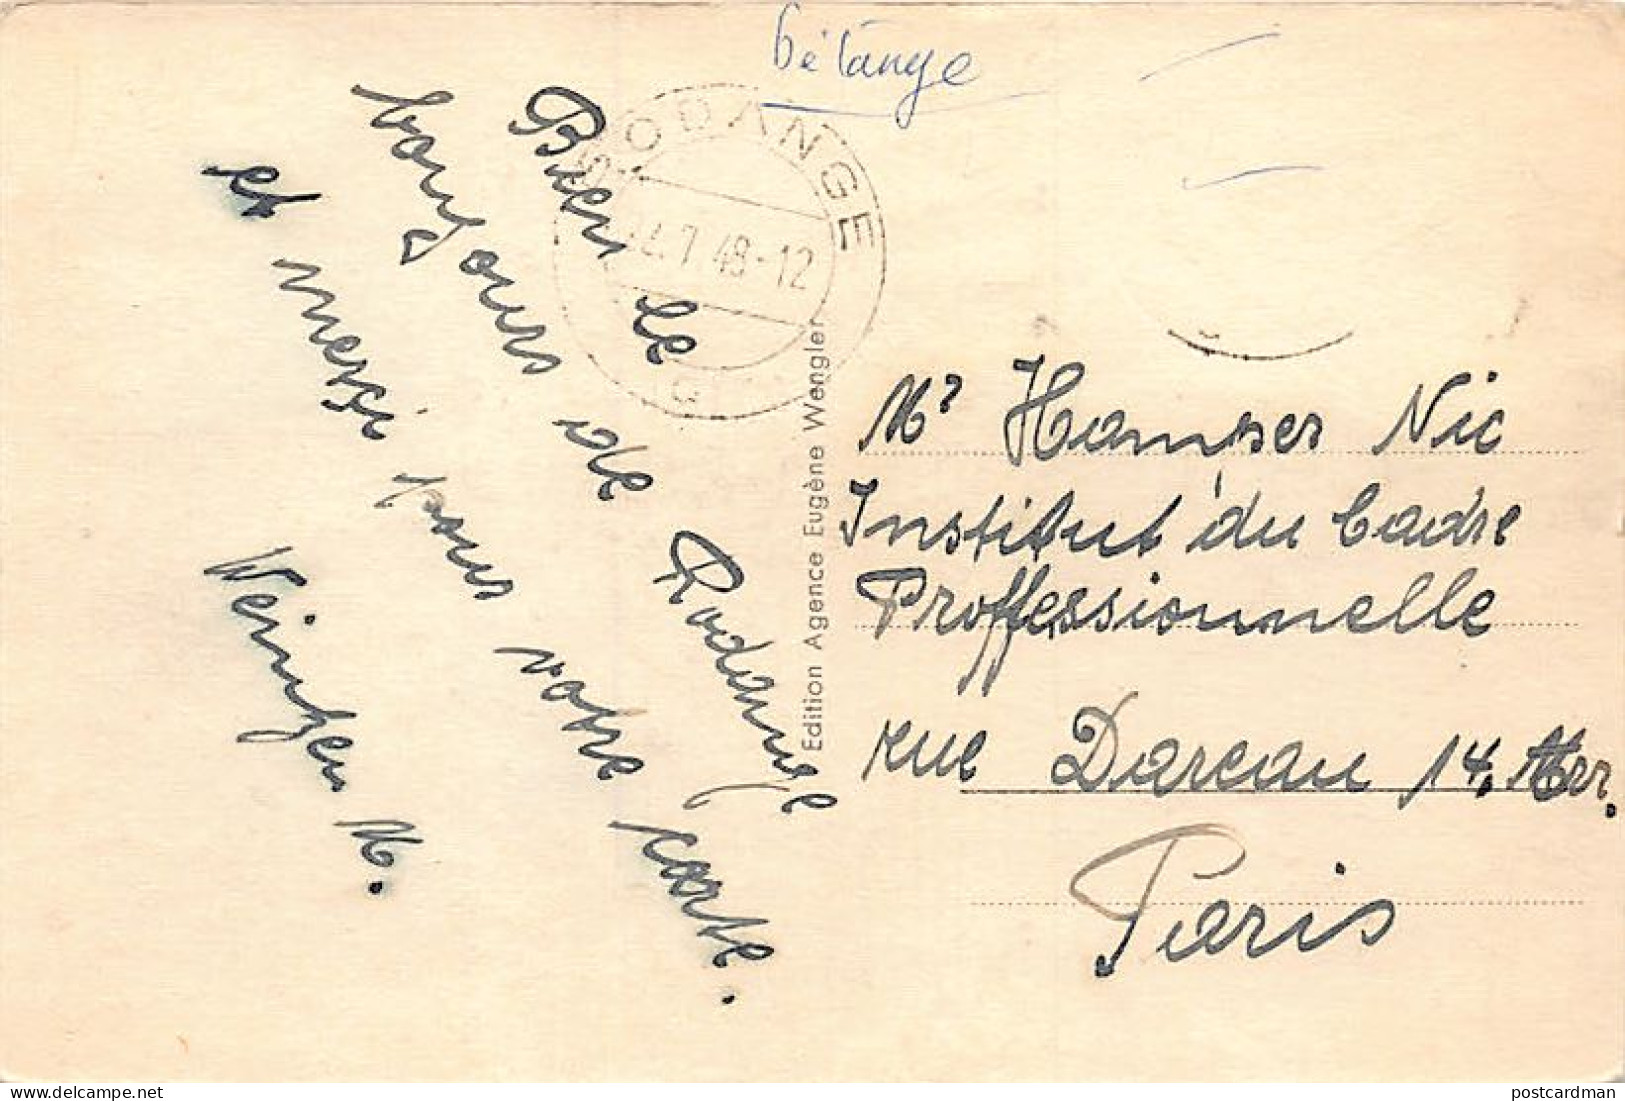 bétange
RODANGE
4.7 48-12
Bien le
bonjours de Rodange
et mersi pour votre carte.
Weinzen M.
Edition Agence Eugène Wengler
Mr Hamper Nic
Institut du Cadre
Proffessionnelle
rue Dareau 14. Arr.
Paris
postcardman